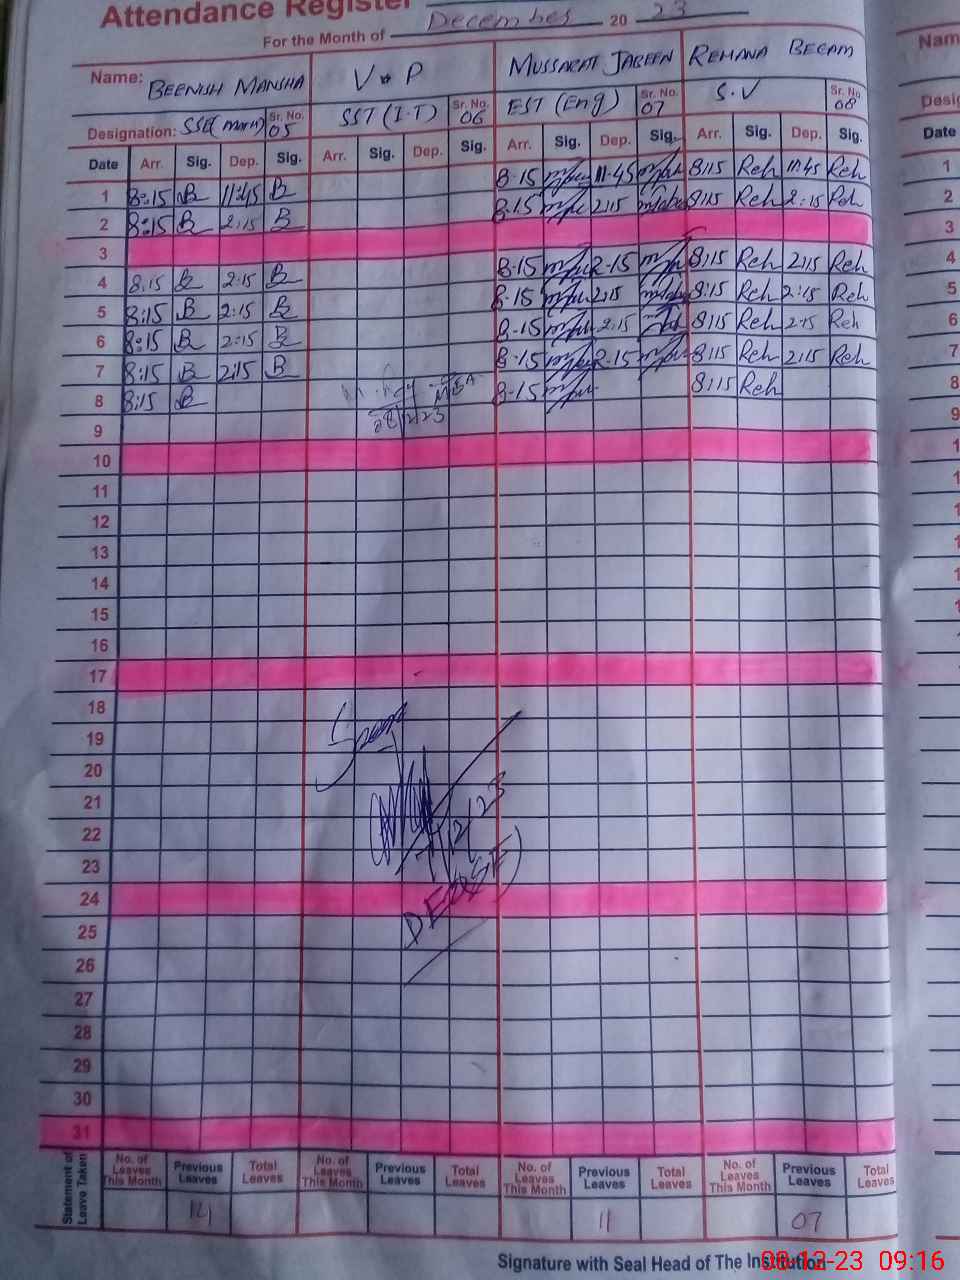 Attendance Register
For the Month of December 20 23
Name: BEENISH MANSHA V*P MUSSARAT JABEEN REHANA BEGAM
Designation: SSE(math) Sr. No. 05 SST (I.T) Sr. No. 06 EST (Eng) Sr. No. 07 S.V Sr. No. 08
Date Arr. Sig. Dep. Sig. Arr. Sig. Dep. Sig. Arr. Sig. Dep. Sig. Arr. Sig. Dep. Sig.
1 8:15 B 11:45 B 8-15 11-45 8:15 Reh 11:45 Reh
2 8:15 B 2:15 B 8-15 2:15 8:15 Reh 2:15 Reh
3
4 8:15 B 2:15 B 8-15 2-15 8:15 Reh 2:15 Reh
5 8:15 B 2:15 B 8-15 2:15 8:15 Reh 2:15 Reh
6 8:15 B 2:15 B 8-15 2:15 8:15 Reh 2:15 Reh
7 8:15 B 2:15 B 8-15 2-15 8:15 Reh 2:15 Reh
8 8:15 B MEA 8-15 8:15 Reh
8/12/23
9
10
11
12
13
14
15
16
17
18
19
20
21
22
23
24
25
26
27
28
29
30
31
Statement of Leave Taken
No. of Leaves This Month Previous Leaves Total Leaves No. of Leaves This Month Previous Leaves Total Leaves No. of Leaves This Month Previous Leaves Total Leaves No. of Leaves This Month Previous Leaves Total Leaves
14 11 07
Signature with Seal Head of The Institution
08-12-23 09:16
Nam
Desig
Date
1
2
3
4
5
6
7
8
9